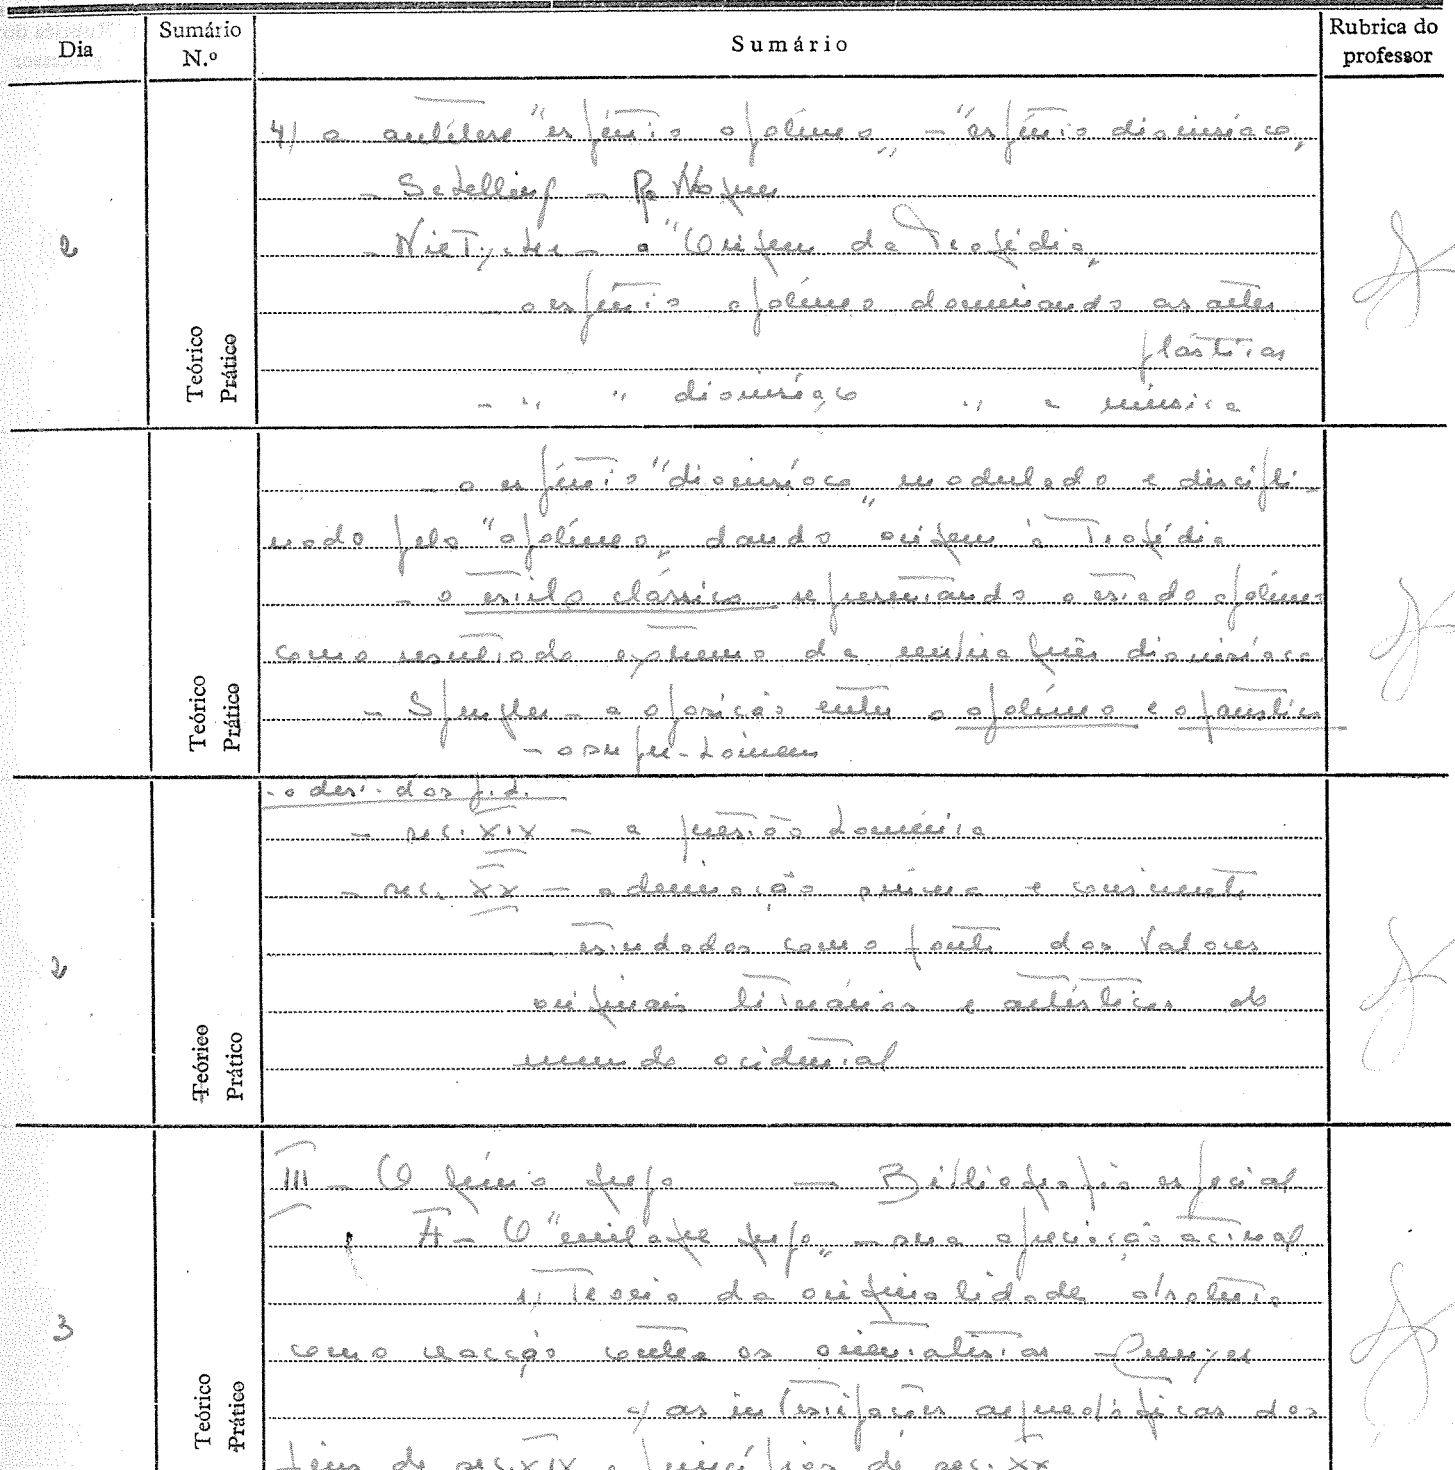 Dia
Sumário N.º
Sumário
Rubrica do professor
2
Teórico
Prático
4) a antítese "espírito apolíneo" – "espírito dionisíaco"
– Schelling – R. Wagner
– Nietzsche – a "Origem da Tragédia"
– o espírito apolíneo dominando as artes
plásticas
– " " dionisíaco " a música
Teórico
Prático
– o espírito "dionisíaco" modulado e discipli-
nado pelo "apolíneo" dando origem à Tragédia
– o estilo clássico representando o estado apolíneo
como resultado extremo da embriaguês dionisíaca
– Spengler – a oposição entre o apolíneo e o faustico
– o super-homem
2
Teórico
Prático
– séc. XIX – a questão homérica
– séc. XX – admiração e
estudados como fonte dos valores
originais literários e artísticos do
mundo ocidental
3
Teórico
Prático
III – O génio grego – Bibliografia especial
A – O "milagre grego" – sua apreciação actual
1) Teoria da originalidade absoluta
como reacção contra os orientalistas – Creuzer
a) as investigações arqueológicas dos
fins do séc. XIX e princípios do séc. XX